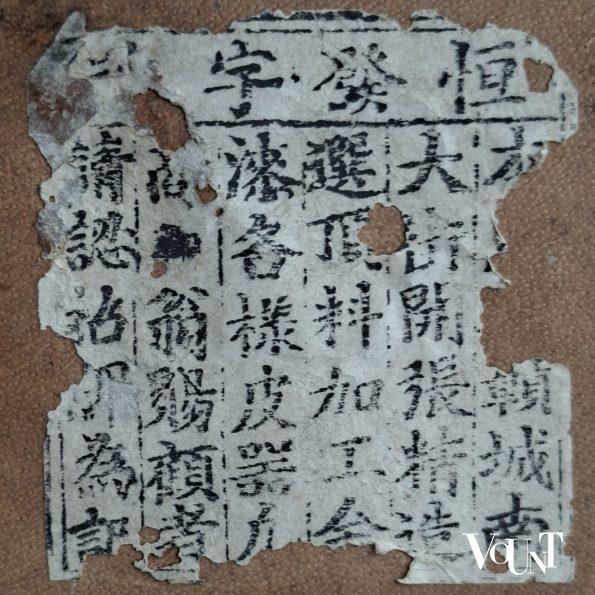 恒發字
城南
大街開張精造
選頂料加工金
漆各樣皮器凡
翁賜顧者
請認招牌為記
VOUNT